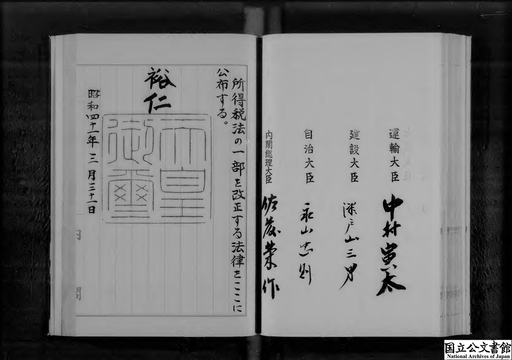 運輸大臣 中村寅太
建設大臣 瀬戸山三男
自治大臣 永山忠則
内閣総理大臣 佐藤榮作
所得税法の一部を改正する法律をここに
公布する。
裕仁
天皇
御璽
昭和四十一年三月三十一日
内閣
国立公文書館
National Archives of Japan